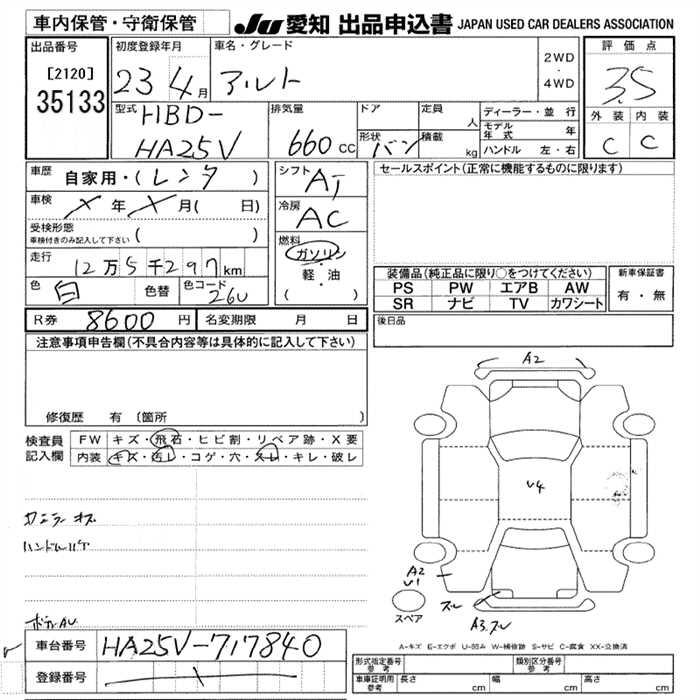 車内保管・守衛保管 JU 愛知 出品申込書 JAPAN USED CAR DEALERS ASSOCIATION
出品番号 [2120] 35133
初度登録年月 23 4月
車名・グレード アルト
2WD ・ 4WD
評価点 3.5
外装 C 内装 C
型式 HBD-HA25V
排気量 660 cc
ドア 形状 バン
定員 人
積載 kg
ディーラー・並行
モデル年式 年
ハンドル 左・右
車歴 自家用・(レンタ )
車検 × 年 × 月( 日)
受検形態 車検付きのみ記入して下さい ( )
走行 12万5千297km
色 白 色替 色コード 26U
シフト AT
冷房 AC
燃料 ガソリン 軽・油 ( )
セールスポイント(正常に機能するものに限ります)
装備品(純正品に限り○をつけてください)
PS PW エアB AW
SR ナビ TV カワシート
新車保証書 有・無
後日品
R券 8600円 名変期限 月 日
注意事項申告欄(不具合内容等は具体的に記入して下さい)
修復歴 有 〔箇所
検査員記入欄
FW キズ・飛石・ヒビ割・リペア跡・X要
内装 キズ・汚レ・コゲ・穴・スレ・キレ・破レ
A2
U4
A2
U1
スレ
A3,スレ
スペア
A-キズ E-エクボ U-凹み W-補修跡 S-サビ C-腐食 XX-交換済
車台番号 HA25V-717840
登録番号
形式指定番号 参考
類別区分番号 参考
車庫証明用 参考 長さ cm 幅 cm 高さ cm